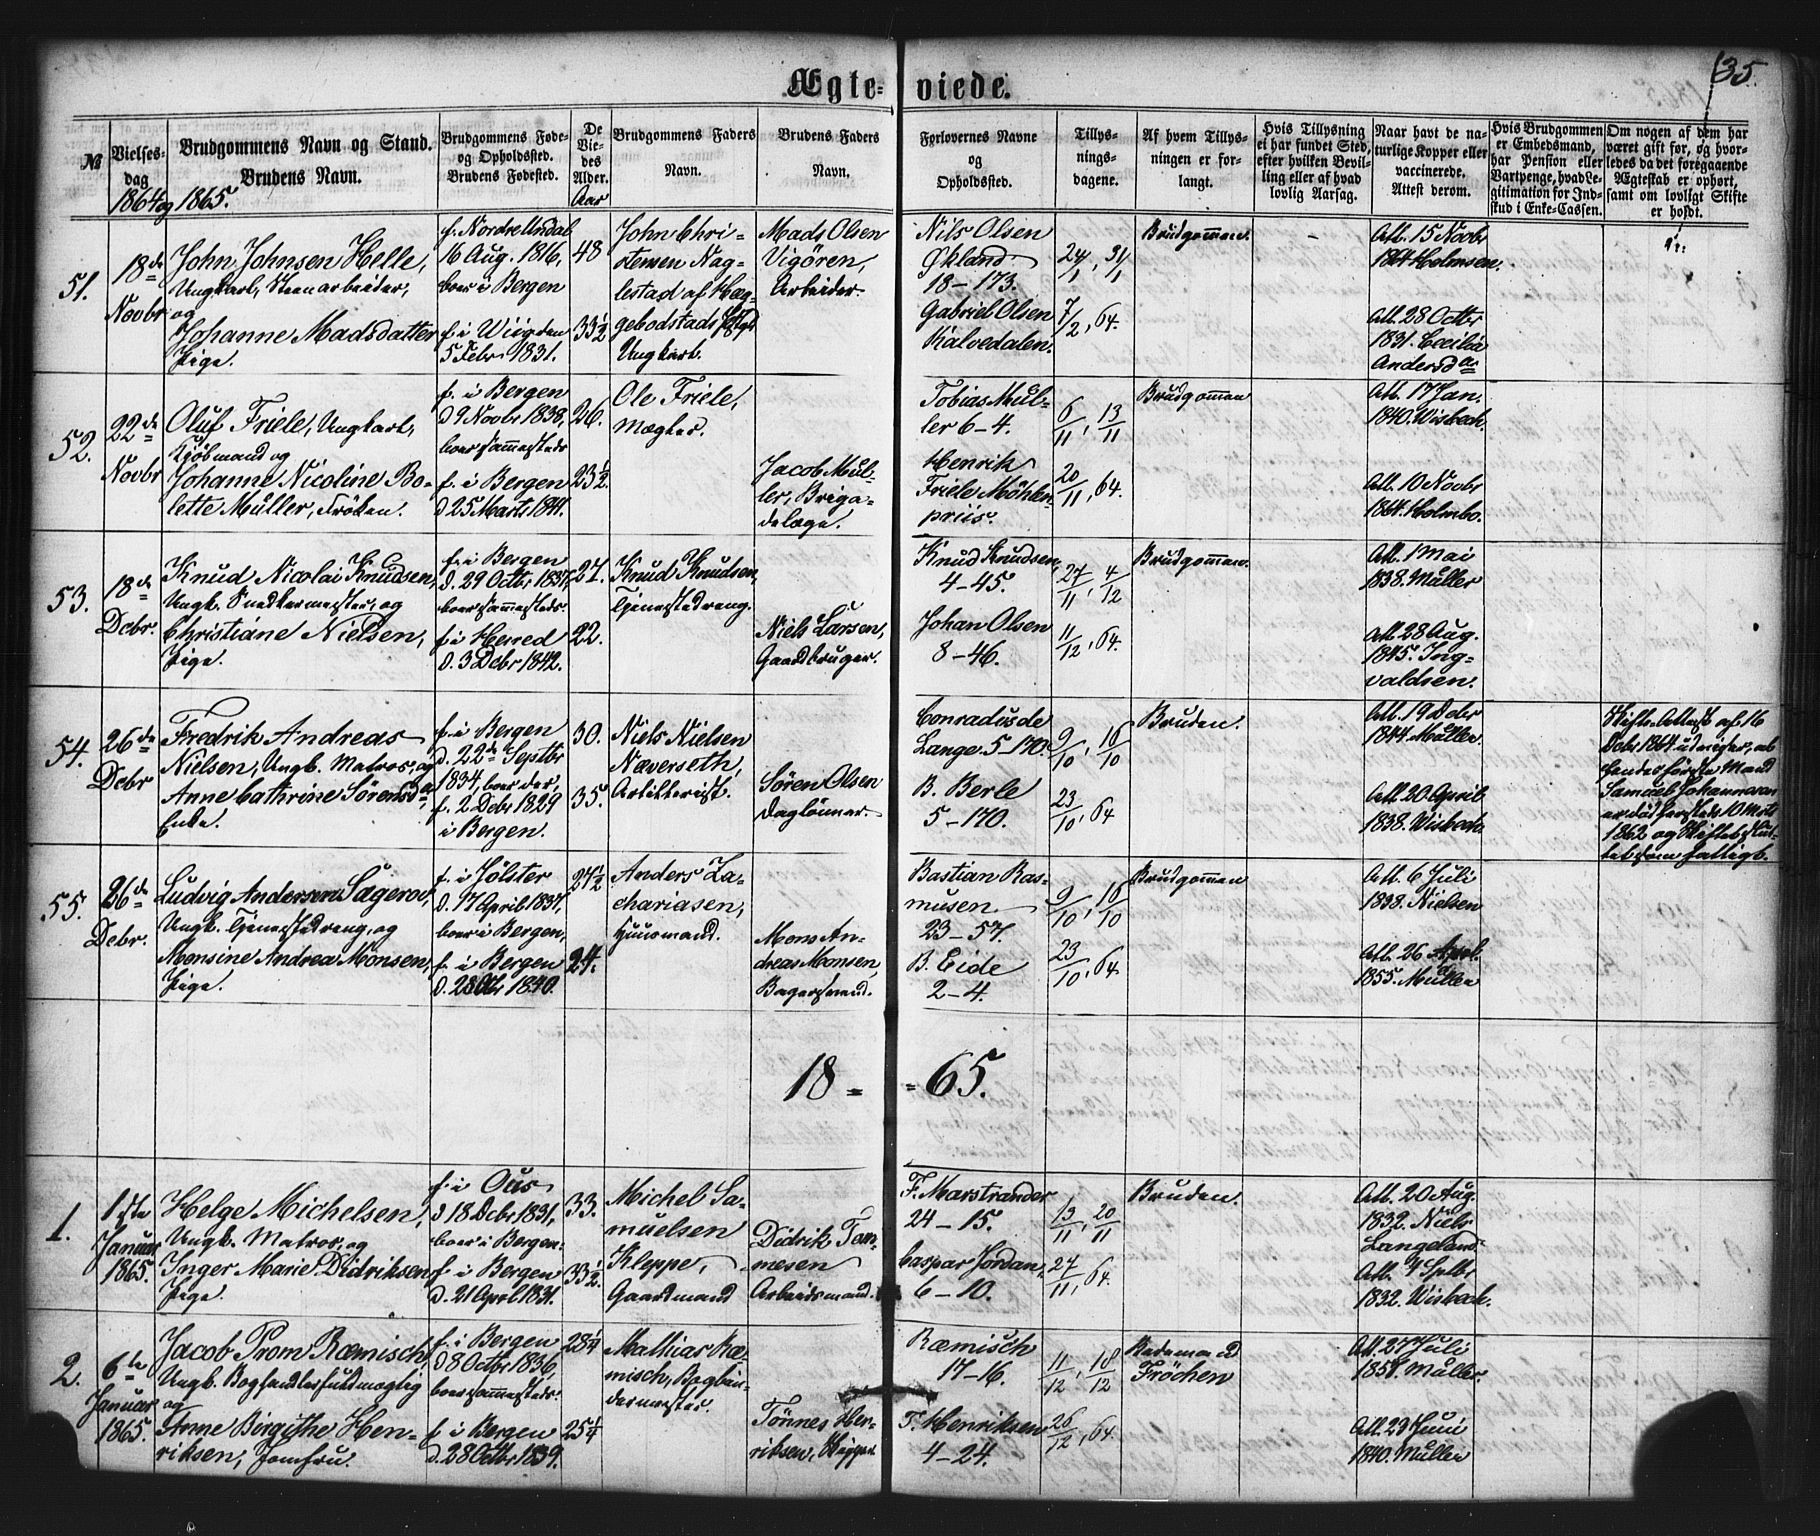 135.
Ægte- viede.
№
Vielses-
dag
1864 og 1865.
Brudgommens Navn og Stand.
Brudens Navn.
Brudgommens Føde-
og Opholdssted.
Brudens Fødested.
De
Vie-
des
Alder.
Aar
Brudgommens Faders
Navn.
Brudens Faders
Navn.
Forlovernes Navne
og
Opholdssted.
Tillys-
nings-
dagene.
Af hvem Tillys-
ningen er for-
langt.
Hvis Tillysning
ei har fundet Sted,
efter hvilken Bevil-
ling eller af hvad
lovlig Aarsag.
Naar havt de na-
turlige Kopper eller
vaccinerede.
Attest derom.
Hvis Brudgommen
er Embedsmand,
har Pension eller
Vartpenge, hvad Le-
gitimation for Ind-
skud i Enke-Cassen.
Om nogen af dem har
været gift før, og hvor-
ledes da det foregaaende
Ægteskab er ophørt,
samt om lovligt Skifte
er holdt.
51.
18de
Novbr
John Johnsen Helle,
Ungkarl, Steenarbeider,
og
Johanne Madsdatter
Pige.
f. Nordre Undal
16 Aug. 1816,
boer i Bergen
f. i Wiigøen
5 Febr 1831.
48
33½
John Chri-
stensen Nag-
lestad af Hæg-
gebodstads Pgd
Ungkarl.
Mads Olsen
Vigören,
Arbeider.
Nils Olsen
Økland
18-173.
Gabriel Olsen
Kalvedalen.
24/1, 31/1
7/2, 64.
Brudgommen.
-
Att. 15 Novbr
1864 Holmsen.
Att. 28 Octbr
1831. Cecilia
Andersda
52.
22de
Novbr
Oluf Friele, Ungkarl,
Kjöbmand og
Johanne Nicoline Bo-
lette Müller, Fröken.
f. i Bergen
d 9 Novbr 1838,
boer sammesteds
f. i Bergen
d 25 Marts 1841.
26.
23½.
Ole Friele,
Mægler.
Jacob Mül-
ler, Briga-
delæge.
Tobias Mül-
ler 6-4.
Henrik
Friele Möhlen-
priis.
6/11, 13/11
20/11, 64.
Brudgommen
Att. 17 Jan.
1840. Wisbech.
Att. 10 Novbr
1864. Holmbo.
53.
18de
Dcbr.
Knud Nicolai Knudsen,
Ungk. Snedkermester, og
Christiane Nielsen,
Pige.
f. i Bergen
d. 29 Octbr 1837,
boer sammesteds.
f. i Herred
d. 3 Dcbr 1842.
27.
22.
Knud Knudsen,
Tjenestedreng.
Niels Larsen,
Gaardbruger.
Knud Knudsen,
4-45.
Johan Olsen
8-46.
27/11, 4/12
11/12, 64.
Brudgommen.
Att. 1 Mai
1838. Müller
Att. 28 Aug.
1845. Ing-
valdsen.
54.
26de
Dcbr
Fredrik Andreas
Nielsen, Ungk. Matros, og
Anne Cathrine Sörensda,
Enke.
f. i Bergen
d. 22de Septbr
1834, boer der,
f. 2 Dcbr 1829
i Bergen.
30.
35.
Niels Nielsen
Næverseth,
Artillerist.
Sören Olsen
Daglönner.
Conradus de
Lange. 5 170.
B. Berle
5-170.
9/10, 16/10
23/10, 64
Bruden.
Att. 19 Dcbr
1844. Müller.
Att. 20 April
1838. Wisbech.
Skifte-Attest af 16
Dcbr 1864 udviser, at
hendes förste Mand
Samuel Johannesen
er död hersteds 10 Mrts
1862 og Skiftet slut-
tet som fattigb.
55.
26de
Debr.
Ludvig Andersen Sægerov,
Ungk. Tjenestedreng, og
Monsine Andrea Monsen,
Pige.
f. i Jölster
d. 17 April 1837,
boer i Bergen,
f. i Bergen
d. 28 Oct 1840.
27½
24.
Anders Za-
chariasen,
Huusmand.
Mons An-
dreas Monsen,
Bagersvend.
Bastian Ras-
musen
23-57.
B. Eide
2-4.
9/10, 16/10
23/10, 64.
Brudgommen
Att. 6 Juli
1838. Nielsen
Att. 26 Apl.
1855. Müller
18 = = 65.
1.
1ste
Januar
1865.
Helge Michelsen,
Ungk. Matros, og
Inger Marie Didriksen
Pige.
f. i Ous
d 18 Dcbr 1831,
boer i Bergen.
f. i Bergen
d. 21 April 1831.
33.
33½.
Michel Sa-
muelsen
Kleppe,
Gaardmand
Didrik Ton-
nesen
Arbeidsmand.
F. Marstrander
24-15.
Caspar Jordan,
6-10.
13/11, 20/11
27/11, 64.
Bruden.
Att. 20 Aug.
1832. Niels
Langeland.
Att. 4 Sptbr
1832. Wisbech.
2.
6te
Januar
1865.
Jacob Prom Ræmisch,
Ungk. Boghandlerfuldmægtig
og
Anne Birgithe Hen-
riksen, Jomfru.
f. i Bergen
d 8 Octbr 1836,
boer sammesteds.
f. i Bergen
d. 28 Octbr 1839.
28¼
25¼
Mathias Ræ-
misch, Bogbin-
dermester.
Tönnes Hen-
riksen, Skipper
Ræmisch
17-16.
T. Henriksen
4-24.
11/12, 18/12
26/12, 64.
Fröchen
Att. 27 Juli
1858. Müller.
Att. 23 Juni
1840. Müller